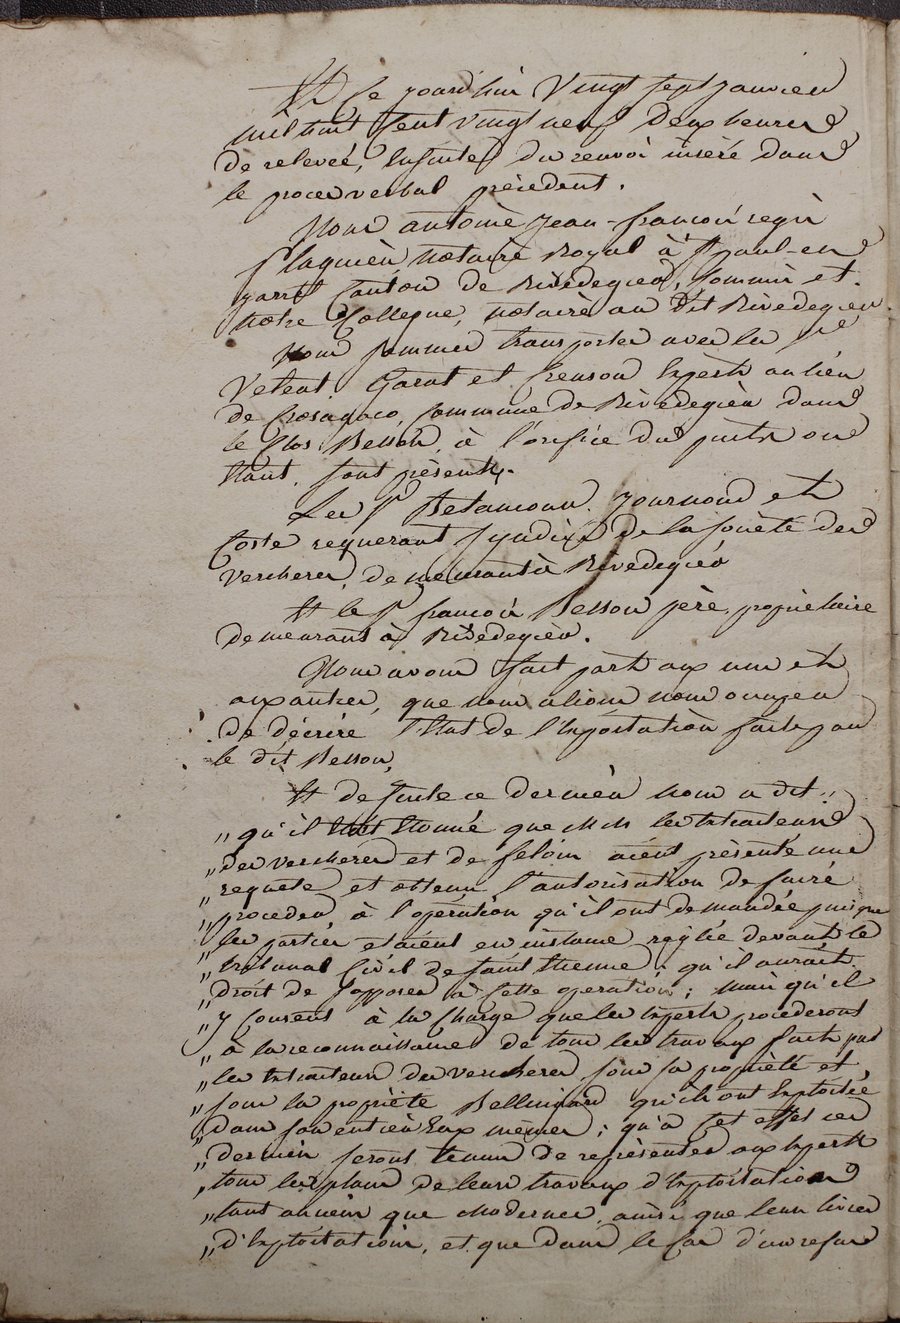 Et Ce jourd'hui Vingt sept janvier
mil huit Cent vingt neuf deux heures
de relevée, Ensuite du renvoi inséré dans
le procès verbal précédent.
Nous antoine jean-françois regis
notaire Royal à St paul-en
jarret Canton de Rivedegier, Commis et
notre Collegue, notaire au Dit Rivedegier.
Nous sommes transportés avec les Srs
Garat et Experts au lieu
de Commune de Rivedegier dans
le Clos Besson, à l'orifice du puits ou
Etant, sont présents.
Les Srs Journoud et
Coste requerant Syndics de la société des
Verchères, demeurants à Rivedegier
Et le Sr françois Besson père, propriétaire
demeurant à Rivedegier.
Nous avons fait part aux uns et
aux autres, que nous alions nous occuper
de décrire l'Etat de l'Exploitation faite par
le dit Besson,
Et de suite ce dernier nous a dit
,, qu'il Est Etonné que MM les Extracteurs
,, des verchères et de feloin aient présenté une
,, requete et obtenu l'autorisation de faire
,, proceder, à l'opération qu'ils ont demandée puisque
,, les parties etaient en instance réglée devant le
,, tribunal Civil de Saint Etienne; qu'il aurait
,, droit de s'opposer à Cette operation; mais qu'il
,, y Consent à la Charge que les Experts procederont
,, à la reconnaissance de tous les travaux faits par
,, les Extracteurs des verchères, sous sa propriété et
,, sous la propriété qu'ils ont Exploitée
,, dans son entier Eux mêmes; qu'à Cet effet ces
,, derniers seront tenus de représenter aux Experts
,, tous les plans de leurs travaux d'Exploitation
,, tant anciens que Modernes, ainsi que leurs livres
,, d'Exploitation, et que dans le Cas d'un refus